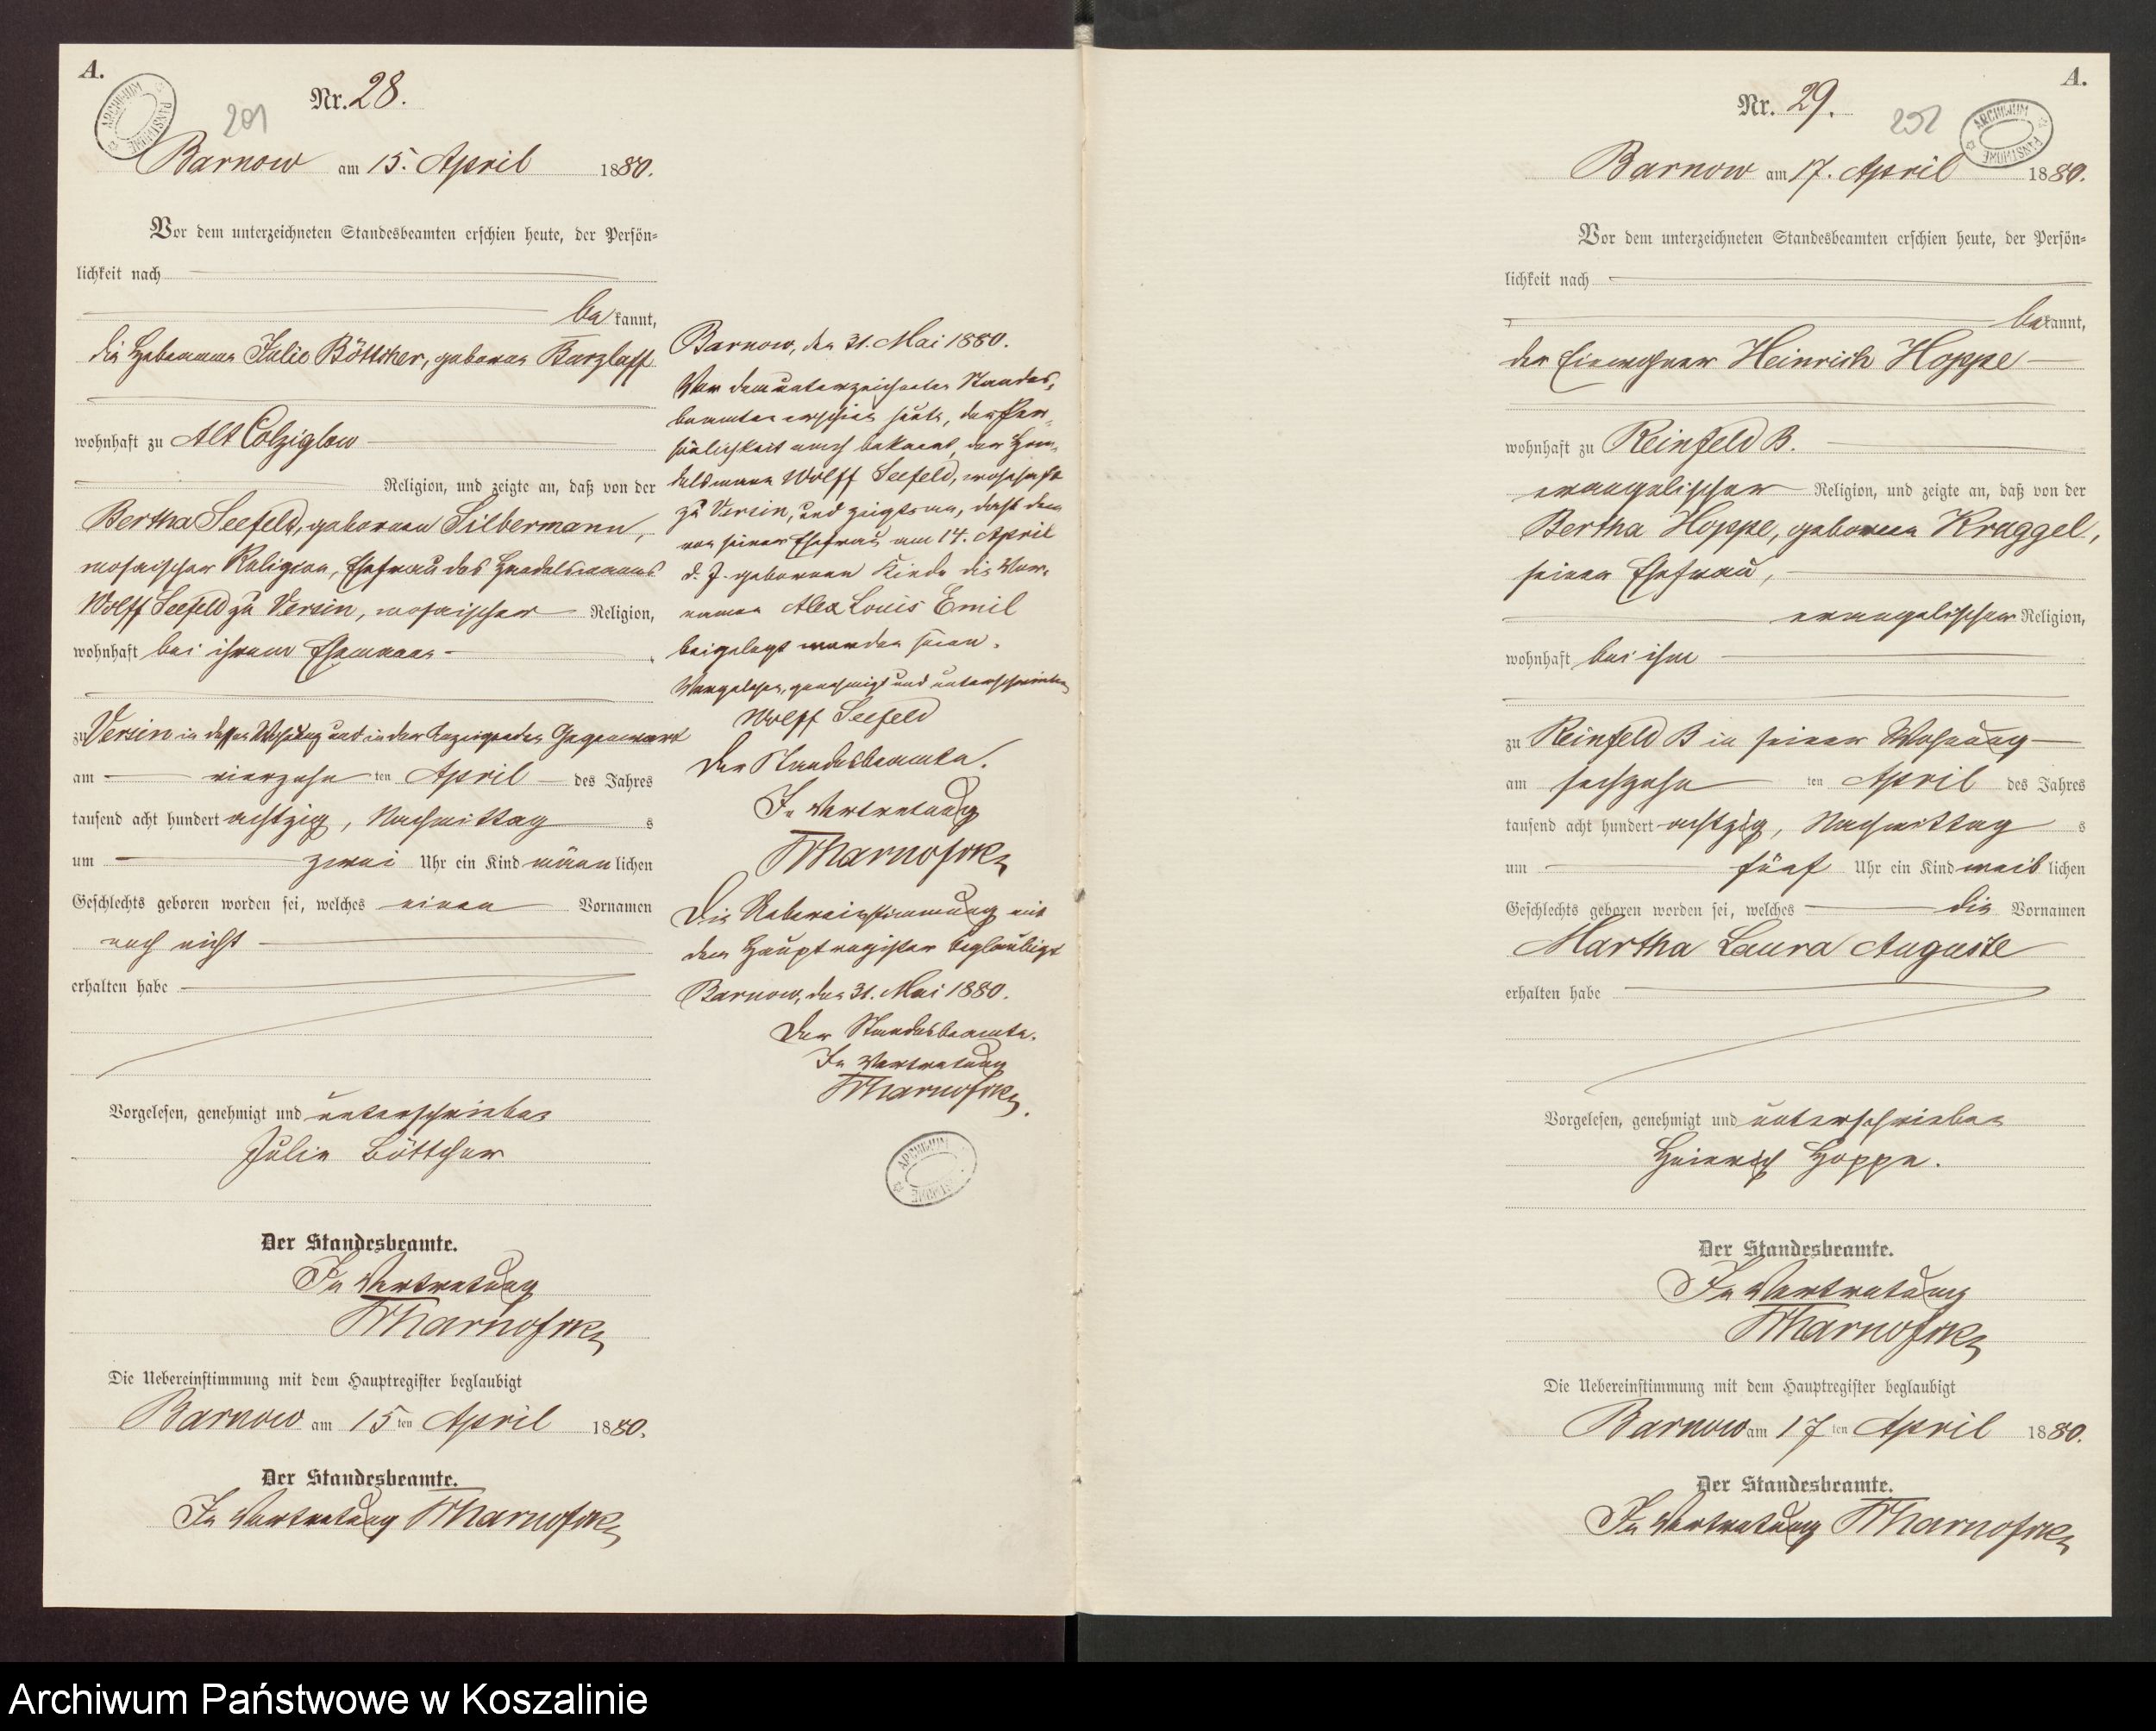 A.
Nr. 28.
201
Barnow am 15. April 1880.
Vor dem unterzeichneten Standesbeamten erschien heute, der Persön-
lichkeit nach
bekannt,
die Hebamme Julie Böttcher, geborene Barzlaff
wohnhaft zu Alt Colziglow
Religion, und zeigte an, daß von der
Bertha Seefeld, geborenen Silbermann,
mosaischer Religion, Ehefrau des Handelsmanns
Wolff Seefeld zu Versin, mosaischer Religion,
wohnhaft bei ihrem Ehemann
zu Versin in dessen Wohnung und in der Anzeigenden Gegenwart
am vierzehnten April des Jahres
tausend acht hundert achtzig, Nachmittags
um zwei Uhr ein Kind männlichen
Geschlechts geboren worden sei, welches einen Vornamen
noch nicht
erhalten habe
Vorgelesen, genehmigt und unterschrieben
Julie Böttcher
Der Standesbeamte.
In Vertretung
Die Uebereinstimmung mit dem Hauptregister beglaubigt
Barnow am 15ten April 1880.
Der Standesbeamte.
In Vertretung
Barnow, den 31. Mai 1880.
Vor dem unterzeichneten Standes-
beamten erschien heute, der Per-
sönlichkeit nach bekannt, der Han-
delsmann Wolff Seefeld, wohnhaft
zu Versin, und zeigte an, daß dem
von seiner Ehefrau am 14. April
d. J. geborenen Kinde die Vor-
namen Alex Louis Emil
beigelegt worden seien.
Vorgelesen, genehmigt und unterschrieben
Wolff Seefeld
Der Standesbeamte.
In Vertretung
Die Uebereinstimmung mit
dem Hauptregister beglaubigt
Barnow, den 31. Mai 1880.
Der Standesbeamte.
In Vertretung
ARCHIWUM PAŃSTWOWE
A.
Nr. 29.
202
ARCHIWUM PAŃSTWOWE
Barnow am 17. April 1880.
Vor dem unterzeichneten Standesbeamten erschien heute, der Persön-
lichkeit nach
bekannt,
der Einwohner Heinrich Hoppe
wohnhaft zu Reinfeld B.
evangelischer Religion, und zeigte an, daß von der
Bertha Hoppe, geborenen Kruggel,
seiner Ehefrau,
evangelischer Religion,
wohnhaft bei ihm
zu Reinfeld B in seiner Wohnung
am sechzehnten April des Jahres
tausend acht hundert achtzig, Nachmittags
um fünf Uhr ein Kind weiblichen
Geschlechts geboren worden sei, welches die Vornamen
Martha Laura Auguste
erhalten habe
Vorgelesen, genehmigt und unterschrieben
Heinrich Hoppe.
Der Standesbeamte.
In Vertretung
Die Uebereinstimmung mit dem Hauptregister beglaubigt
Barnow am 17ten April 1880.
Der Standesbeamte.
In Vertretung
Archiwum Państwowe w Koszalinie